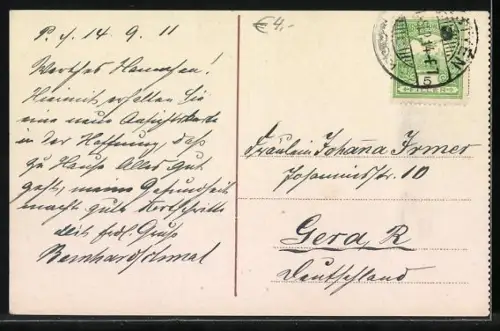 P. s. 14. 9. 11
€4,-
Werthes Hannchen!
Hiermit erhalten Sie
eine neue Ansichtskarte
in der Hoffnung, daß
zu Hause Alles gut
geht, meine Gesundheit
macht gute Fortschritte
Mit frdl. Gruß
Bernhard Schmal
5
FILLER
Fräulein Johanna Irmer
Johannisstr. 10
Gera, R
Deutschland